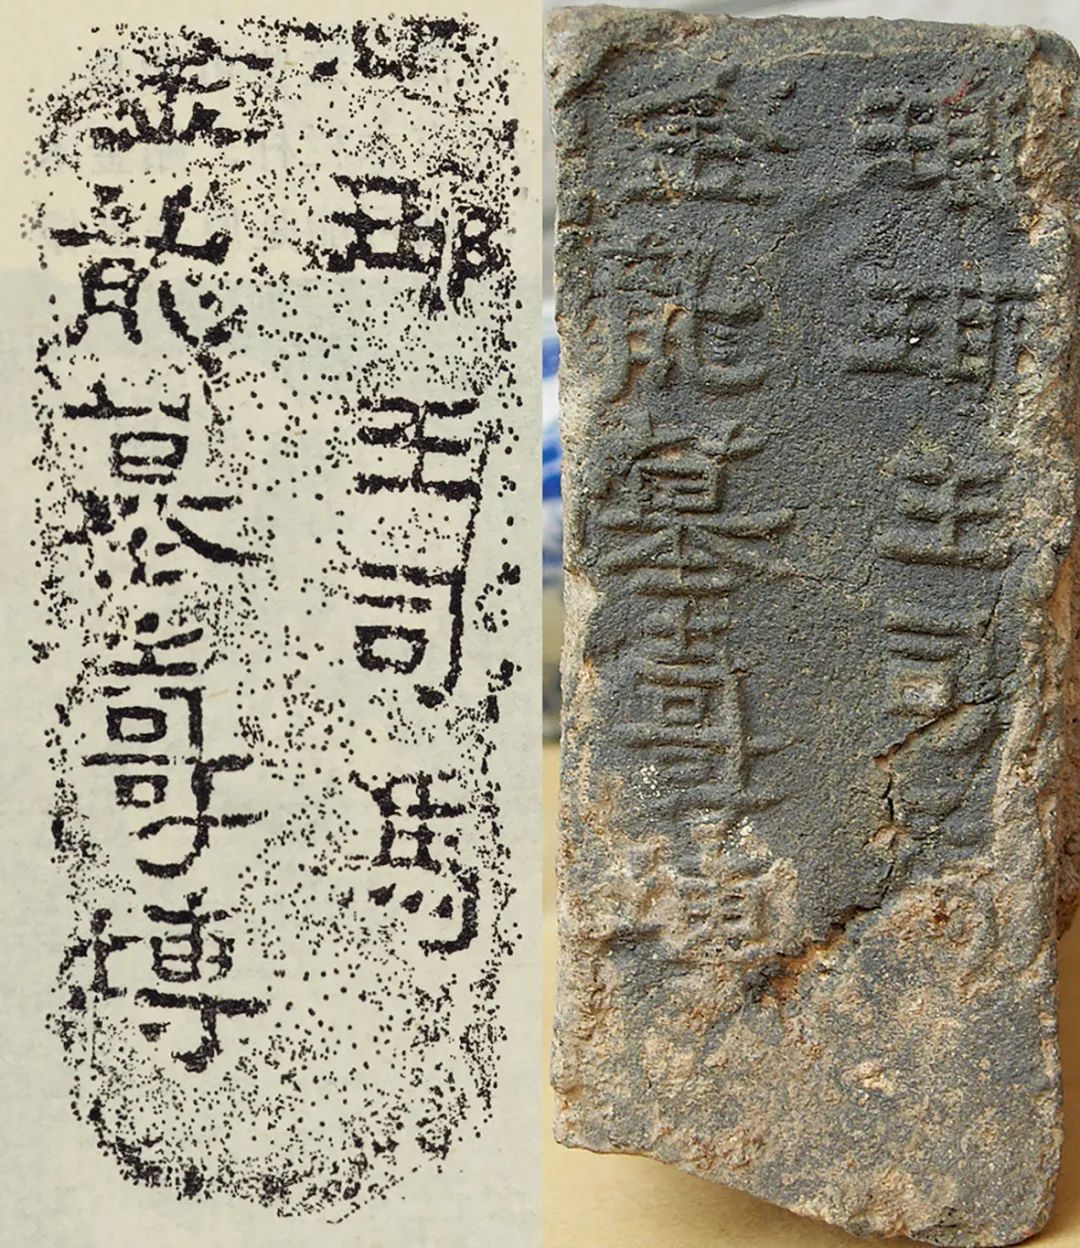 琊王司馬
金龍墓壽塼
琅琊王司馬
金龍墓壽塼